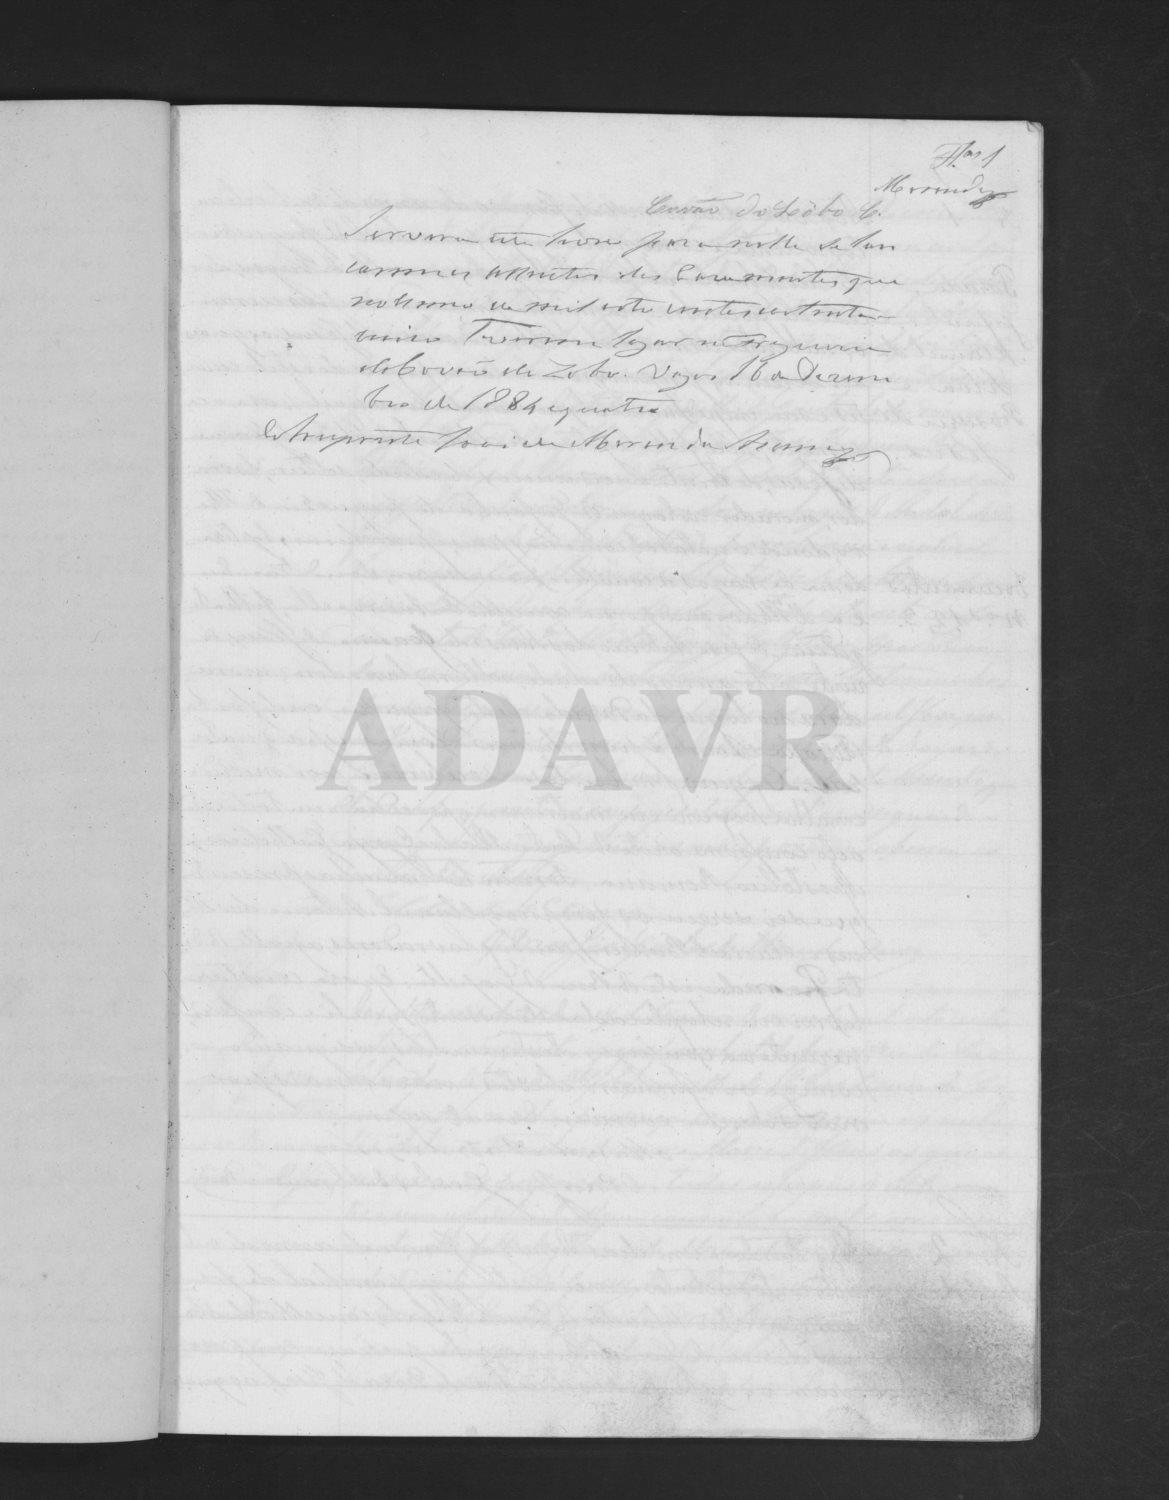 Fls 1
Miranda
Covão do Lôbo C.
Servira este livro para nelle se lan
carem os assentos dos Casamentos que
no anno de mil oito centos e oitenta e
cinco Tiverem lugar na freguesia
do Covão do Lobo. Vagos 16 de Dezem
bro de 1884 e quatro
O Arcypreste José de Miranda
ADAVR